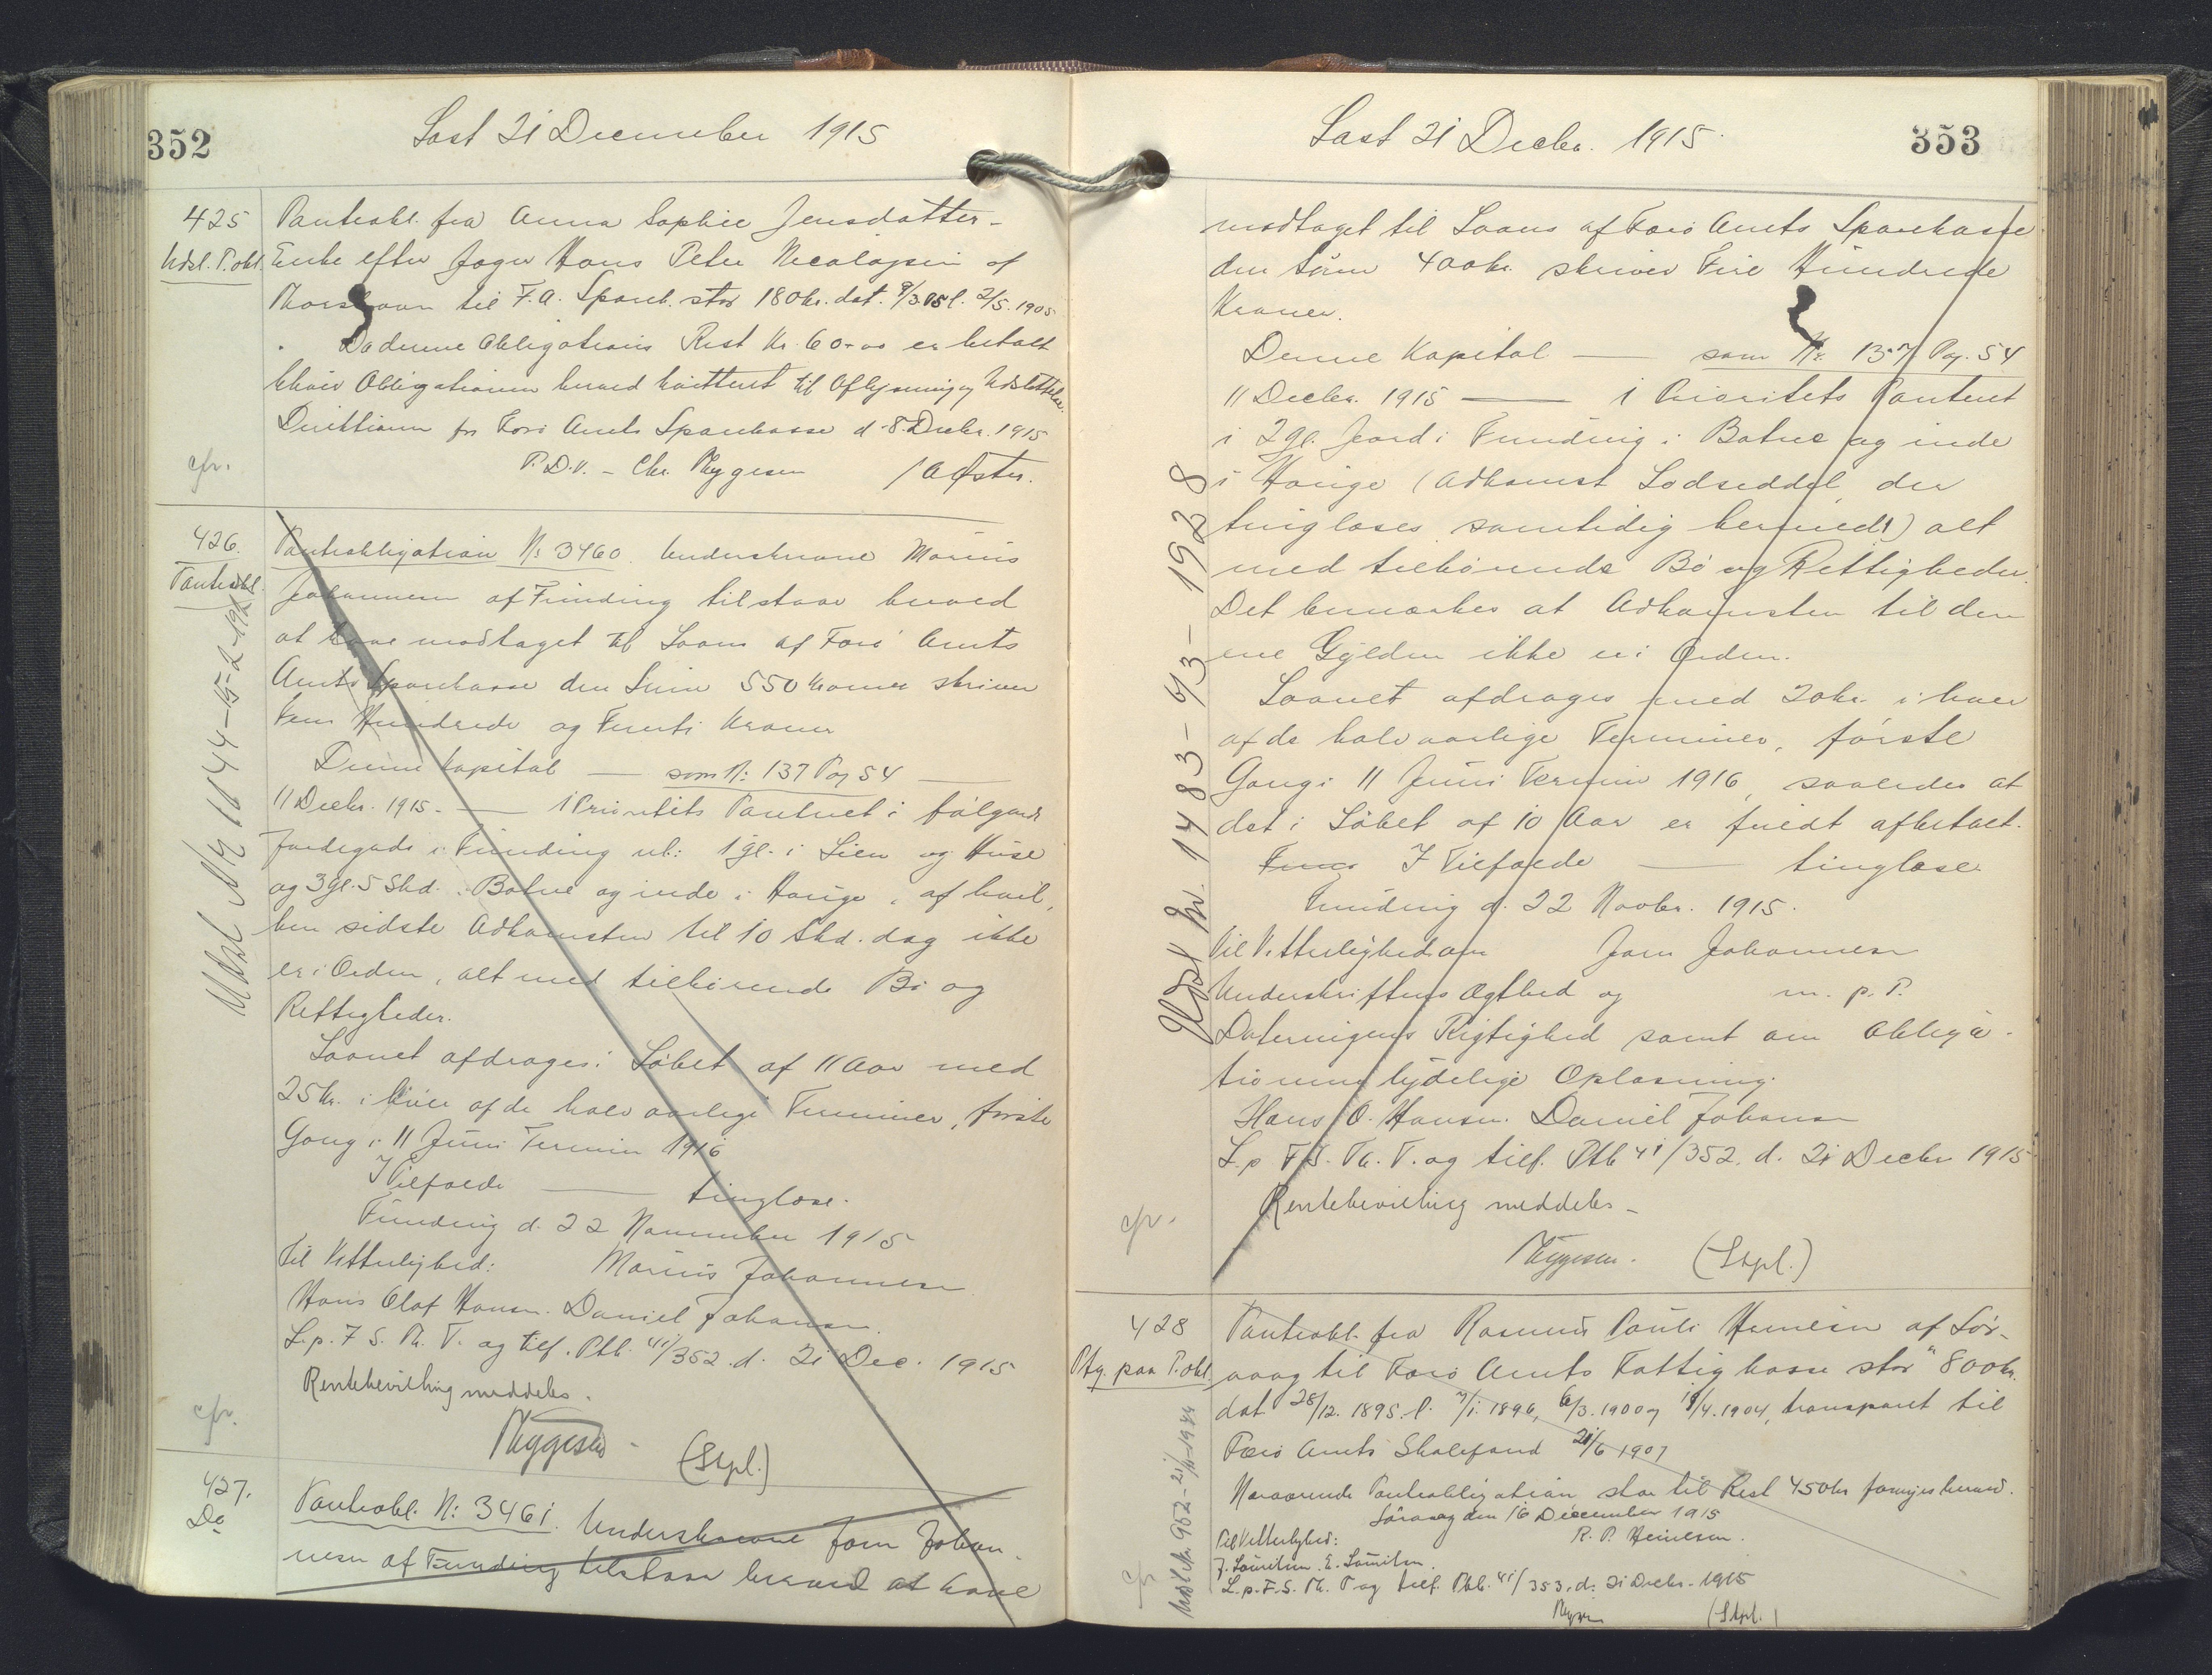 352
Læst 21 December 1915
425
Udsl. P.obl.
Panteobl. fra Anna Sophie Jensdatter -
Enke efter Jøger Hans Peter Nicolajsen af
Thorshavn til F.A. Spark. stor 180 kr. dat. 9/3.05 l. 2/5.1905
Da denne Obligations Rest Kr. 60-00 er betalt
bliver Obligationen herved kvitteret til Aflysning og Udslettelse.
Direktionen for Færø Amts Sparekasse d. 8. Decbr. 1915
P.D.V. - Chr. Thygesen / A Øster.
cfr.
426.
Panteobl.
Udsl Nr 1144-15-2-19
Panteobligation No 3460. Underskrevne Marius
Johannesen af Funding tilstaar herved
at have modtaget til Laans af Færø Amts
Amts Sparekasse den Sum 550 Kroner skriver
Fem Hundrede og Femti Kroner
Denne Kapital — som No 137 Pag 54 —
11 Decbr. 1915 - — 1 Prioritets Panteret i følgende
Jordegods i Funding nl: 1 gl. i Lien og Huse
og 3 gl. 5 Skd. i Botne og inde i Hauge, af hvil,
ken sidste Adkomsten til 10 Skd. dog ikke
er i Orden, alt med tilhørende Bø og
Rettigheder.
Laanet afdrages i Løbet af 11 Aar med
25 Kr. i hver af de halvaarlige Terminer, første
Gang i 11 Juni Termin 1916
I Tilfælde — tinglæse.
Funding d. 22 November 1915
Til Vitterlighed: Marius Johannesen
Hans Olaf Hansen. Daniel Johansen.
L.p. F. S. Th. T. og tilf. Ptb. 41/352. d. 21 Dec. 1915
Rentebevilling meddeles.
cfr.
Thygesen - (Stpl.)
427.
Do
Panteobl. No 3461. Underskrevne Joen Johan-
nesen af Funding tilstaar herved at have
353
Læst 21 Decbr. 1915.
modtaget til Laans af Færø Amts Sparekasse
den Sum 400 kr. skriver Fire Hundrede
Kroner.
Denne Kapital — som No. 137 Pag. 54
11 Decbr. 1915 — 1 Prioritets Panteret
i 2 gl. Jord i Funding i Botne og inde
i Hauge (Adkomst Lodseddel, der
tinglæses samtidig hermed!) alt
med tilhørende Bø og Rettigheder.
Det bemærkes at Adkomsten til den
ene Gylden ikke er i Orden.
Laanet afdrages med 20 kr. i hver
af de halvaarlige Terminer, første
Gang i 11 Juni Termin 1916, saaledes at
det i Løbet af 10 Aar er fuldt afbetalt.
I Tilfælde — tinglæse.
Funding d. 22 Novbr. 1915.
Til Vitterlighed om Joen Johannesen
Underskriftens Ægthed og m. p. P.
Dateringens Rigtighed samt om Obliga-
tionens tydelige Oplæsning.
Hans O. Hansen. Daniel Johansen
L.p. F.S. Th. T. og tilf. Ptb 41/352. d. 21 Decbr 1915
Rentebevilling meddeles -
cfr.
Thygesen. (Stpl.)
Udsl Nr. 1483-6/3-1928
428
Ptg. paa P.obl.
Panteobl. fra Rasmus Pauli Heinesen af Sør-
vaag til Færø Amts Fattigkasse stor 800 kr.
dat 28/12. 1895. l. 7/1. 1896, 6/3. 1900 og 19/4. 1904, transporet til
Færø Amts Skolefond 21/6 1907
Nærværende Panteobligation stor til Rest 450 kr fornyes herved.
Sørvaag den 16 December 1915
Til Vitterlighed: R. P. Heinesen.
J. Lauritsen. E. Lauritsen.
L.p. F. S. Th. T og tilf. Ptb. 41/353. d. 21 Decbr. 1915
(Stpl.)